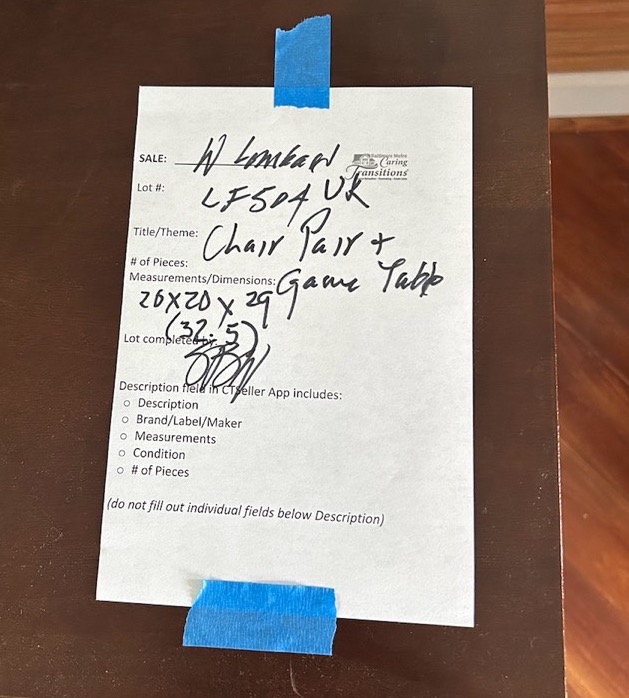 SALE: W Lombard
Baltimore Metro
Caring
Transitions
Lot #: LF504 UR
Title/Theme: Chair Pair +
# of Pieces:
Measurements/Dimensions: Game Table
26x20 x 29
(32.5)
Lot completed by:
Description field in CTSeller App includes:
○ Description
○ Brand/Label/Maker
○ Measurements
○ Condition
○ # of Pieces
(do not fill out individual fields below Description)